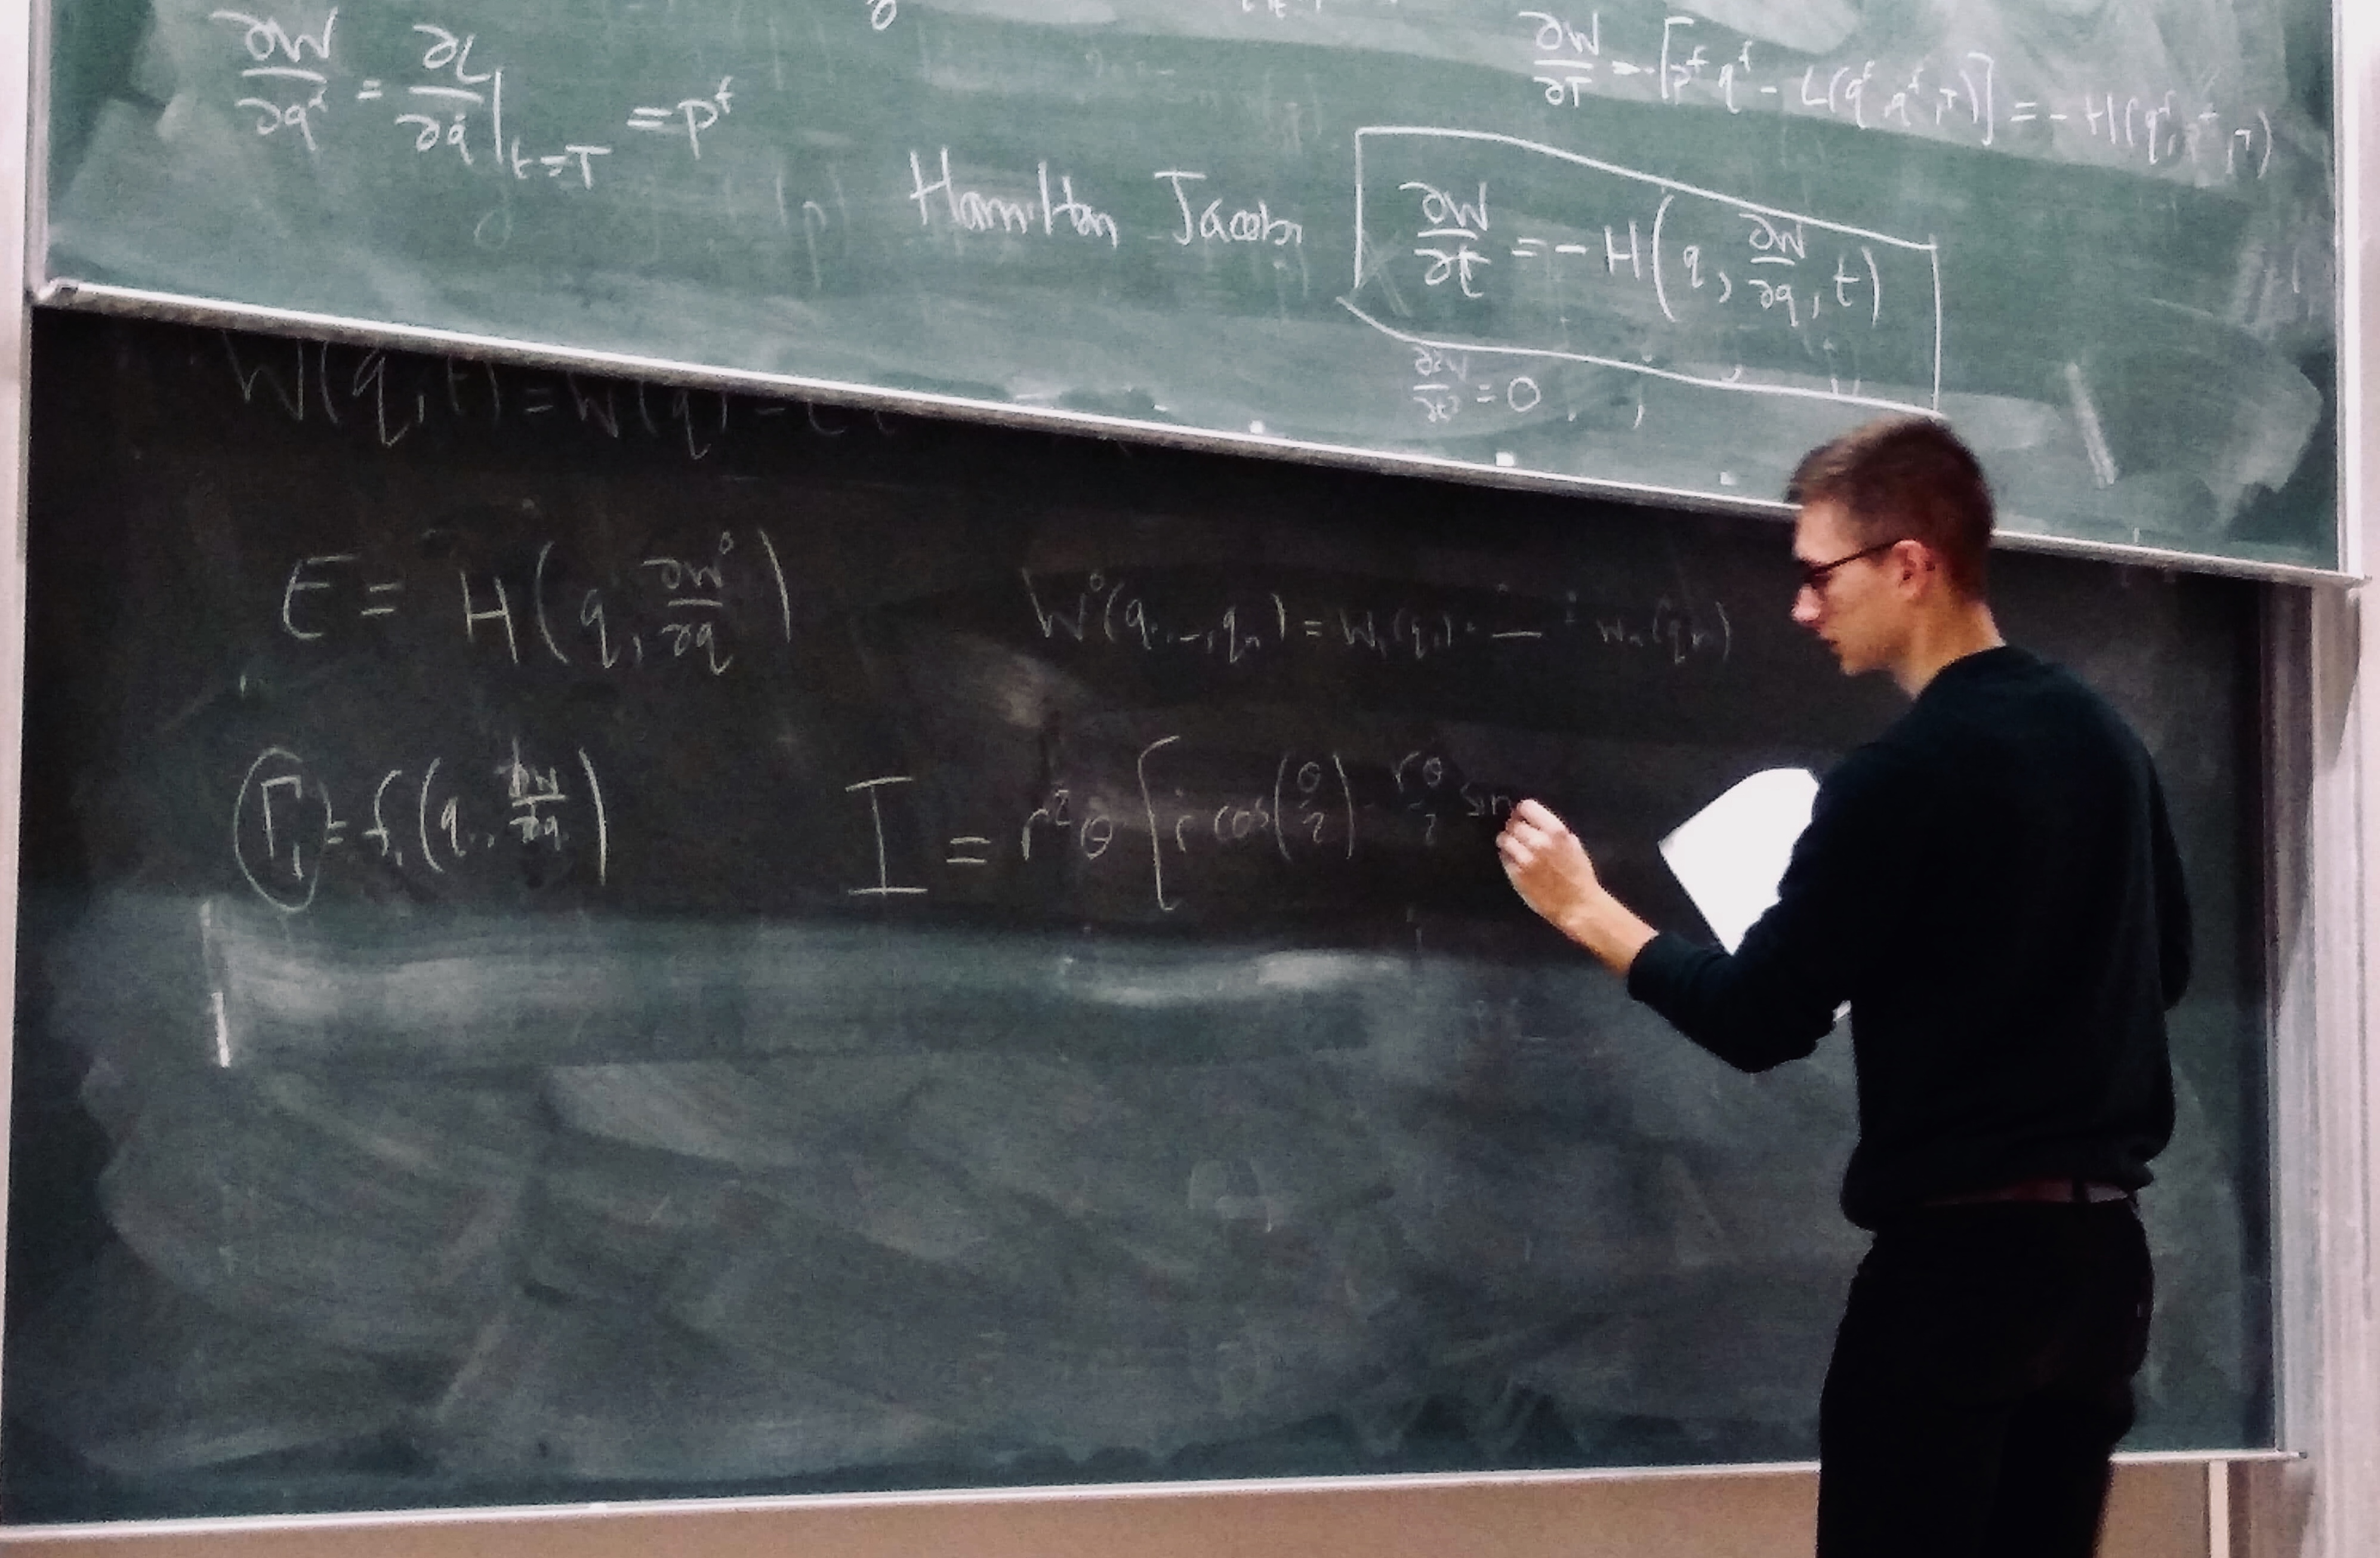 ∂W/∂q^f = ∂L/∂q̇ |_{t=T} = p^f
∂W/∂T = -[p^f q̇^f - L(q^f, q̇^f, T)] = -H(q^f, p^f, T)
Hamilton Jacobi ∂W/∂t = -H(q, ∂W/∂q, t)
∂²W/∂t² = 0
W(q,t) = W°(q) -
E = H(q, ∂W°/∂q)
W°(q₁, ..., qₙ) = W₁(q₁) + — + Wₙ(qₙ)
Γ₁ = f₁(q₁, ∂W/∂q₁)
I = r²θ̇ [ṙ cos(θ/2) - rθ̇/2 sin